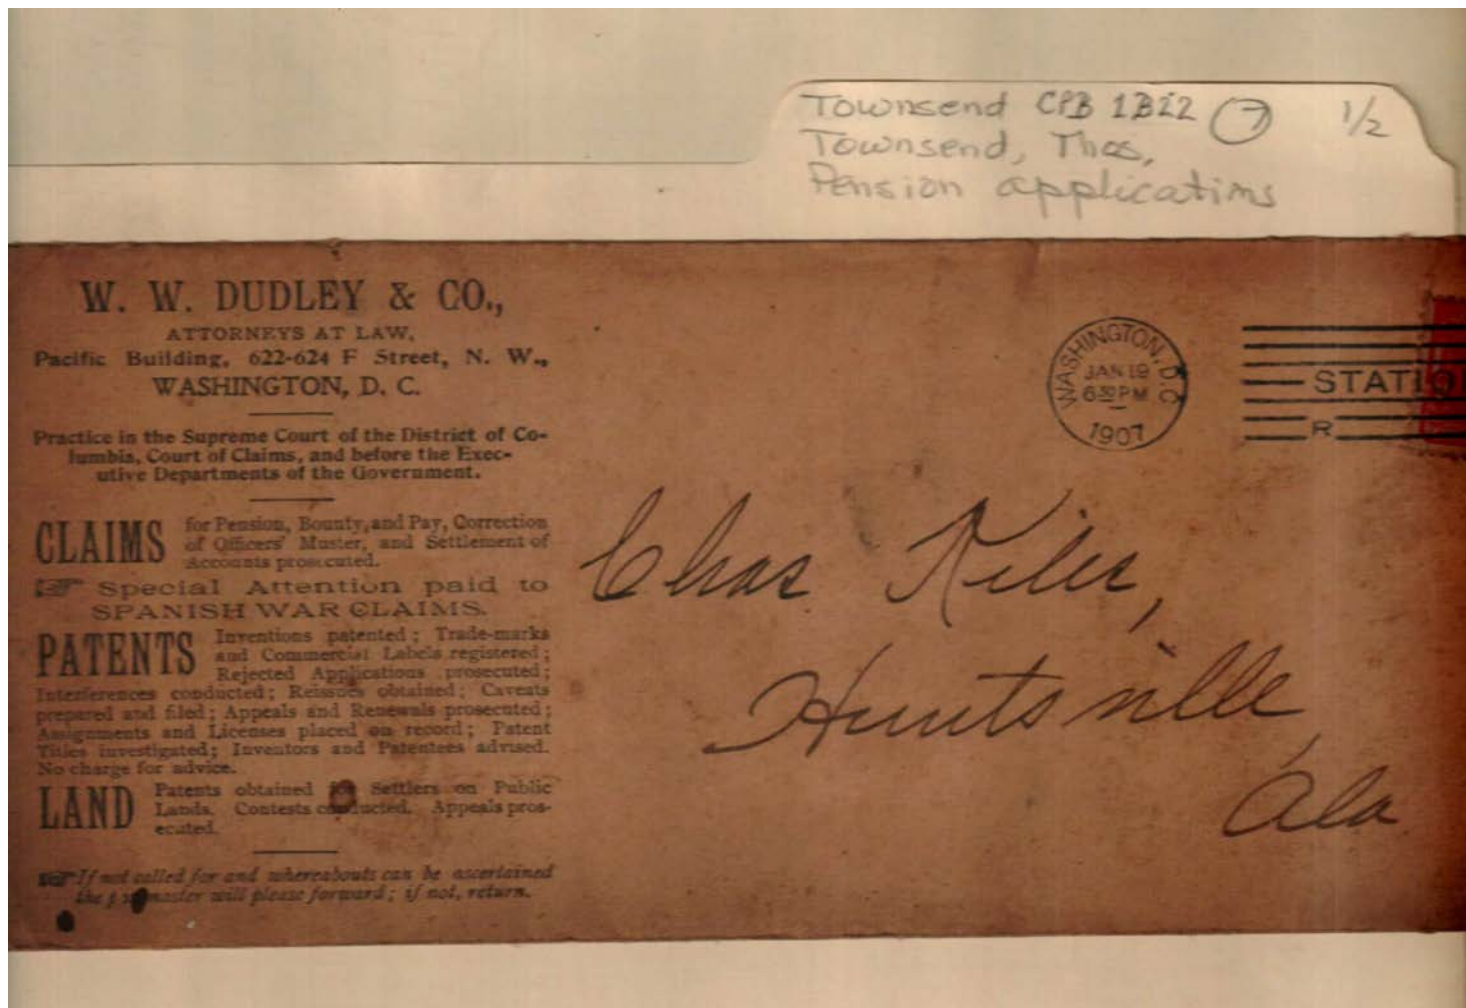 Townsend CPB 1B22 7 1/2
Townsend, Thos,
Pension applications
W. W. DUDLEY & CO.,
ATTORNEYS AT LAW,
Pacific Building, 622-624 F Street, N. W.,
WASHINGTON, D. C.
Practice in the Supreme Court of the District of Co-
lumbia, Court of Claims, and before the Exec-
utive Departments of the Government.
CLAIMS for Pension, Bounty, and Pay, Correction
of Officers' Muster, and Settlement of
Accounts prosecuted.
☞ Special Attention paid to
SPANISH WAR CLAIMS.
PATENTS Inventions patented; Trade-marks
and Commercial Labels registered;
Rejected Applications prosecuted;
Interferences conducted; Reissues obtained; Caveats
prepared and filed; Appeals and Renewals prosecuted;
Assignments and Licenses placed on record; Patent
Titles investigated; Inventors and Patentees advised.
No charge for advice.
LAND Patents obtained for Settlers on Public
Lands. Contests conducted. Appeals pros-
ecuted.
☞ If not called for and whereabouts can be ascertained
the postmaster will please forward; if not, return.
WASHINGTON, D.C.
JAN 19
6 30 PM
1907
STATIO
R
Chas
Huntsville,
Ala